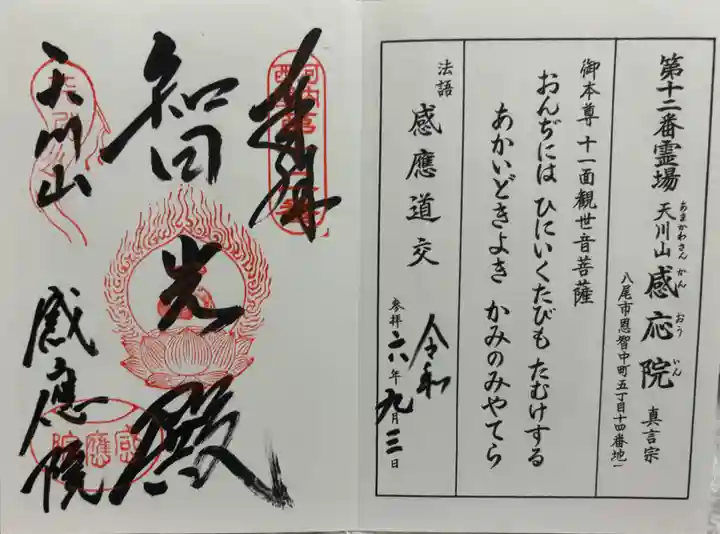 第十二番霊場 天川山 感応院 真言宗
あまかわさん かん おう いん
八尾市恩智中町五丁目十四番地一
御本尊 十一面観世音菩薩
おんぢには ひにいくたびも たむけする
あかいどきよき かみのみやてら
法語 感應道交
参拝 令和六年九月三日
奉拝
智光殿
天川山
感應院
感應院